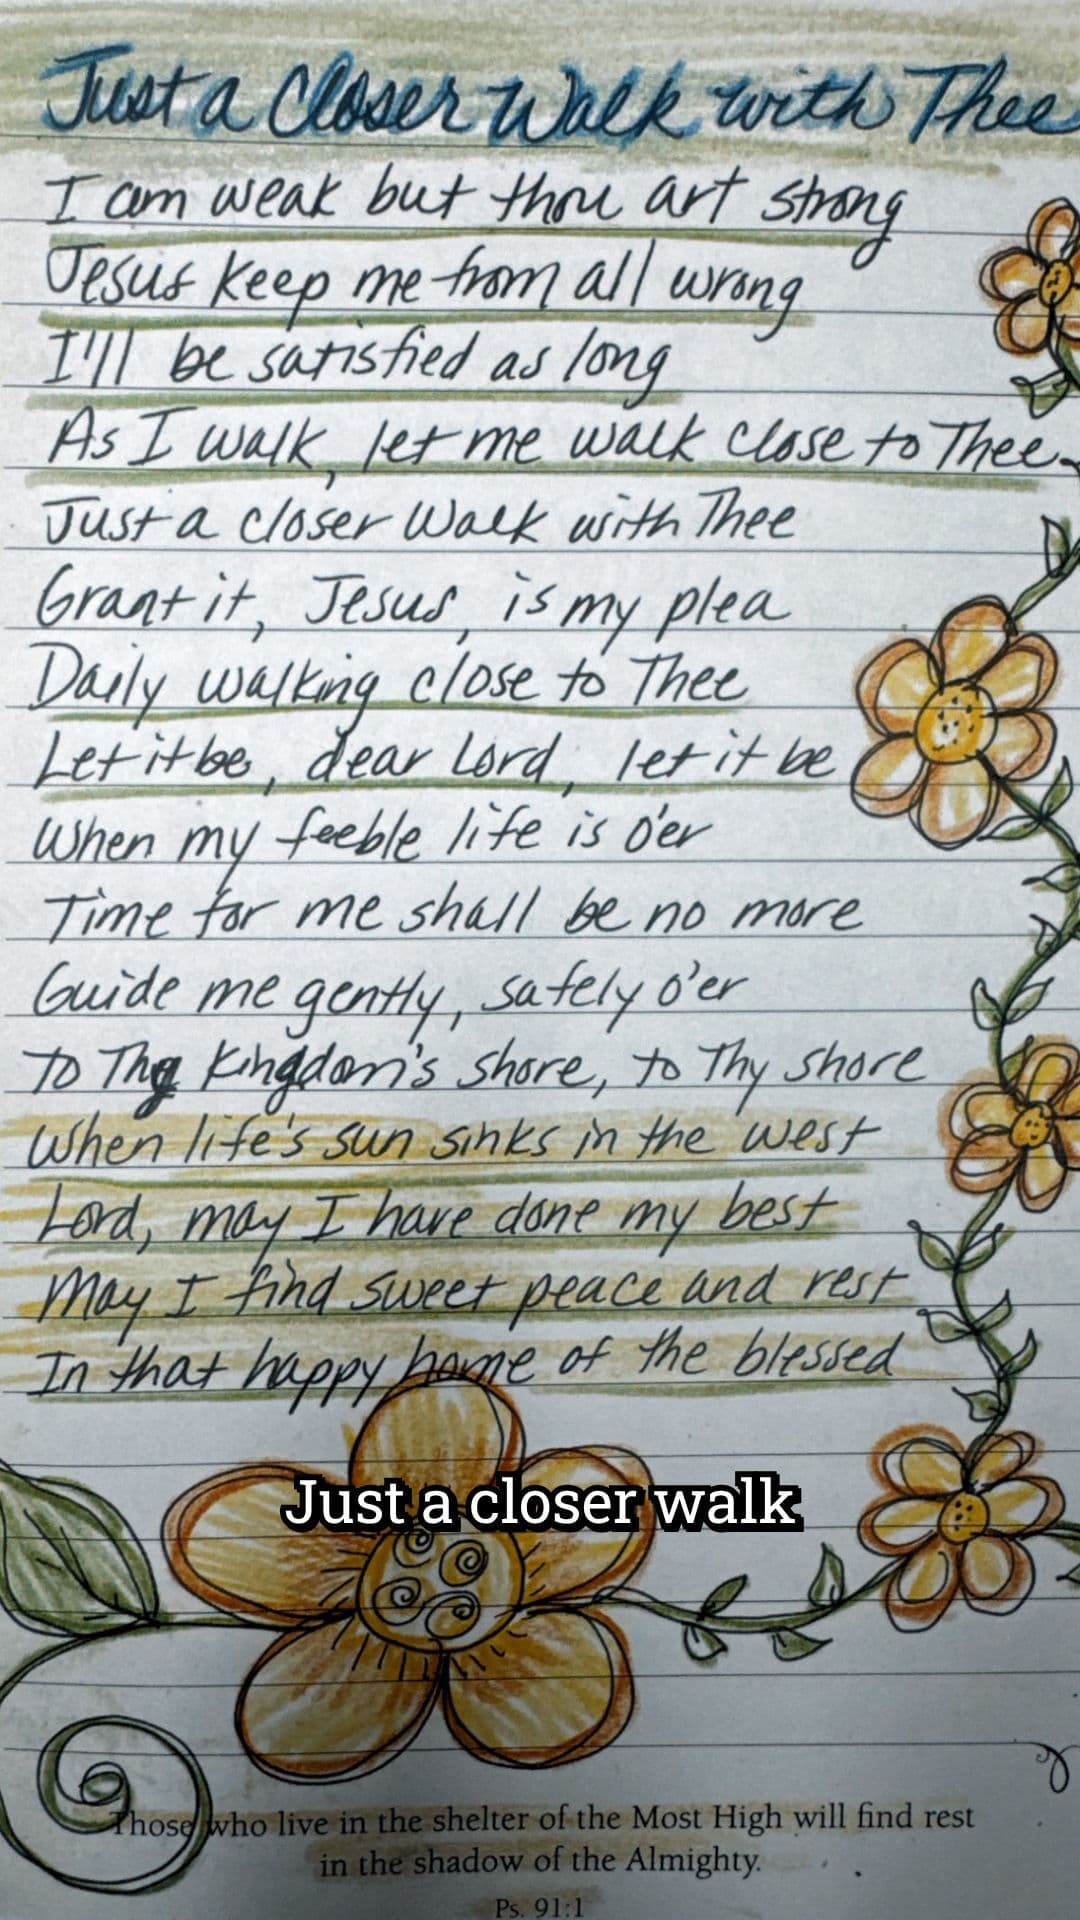 Just a Closer Walk with Thee
I am weak but thou art strong
Jesus keep me from all wrong
I'll be satisfied as long
As I walk, let me walk close to Thee
Just a closer walk with Thee
Grant it, Jesus, is my plea
Daily walking close to Thee
Let it be, dear Lord, let it be
When my feeble life is o'er
Time for me shall be no more
Guide me gently, safely o'er
To Thy Kingdom's shore, to Thy shore
When life's sun sinks in the west
Lord, may I have done my best
May I find sweet peace and rest
In that happy home of the blessed
Just a closer walk
Those who live in the shelter of the Most High will find rest
in the shadow of the Almighty.
Ps. 91:1